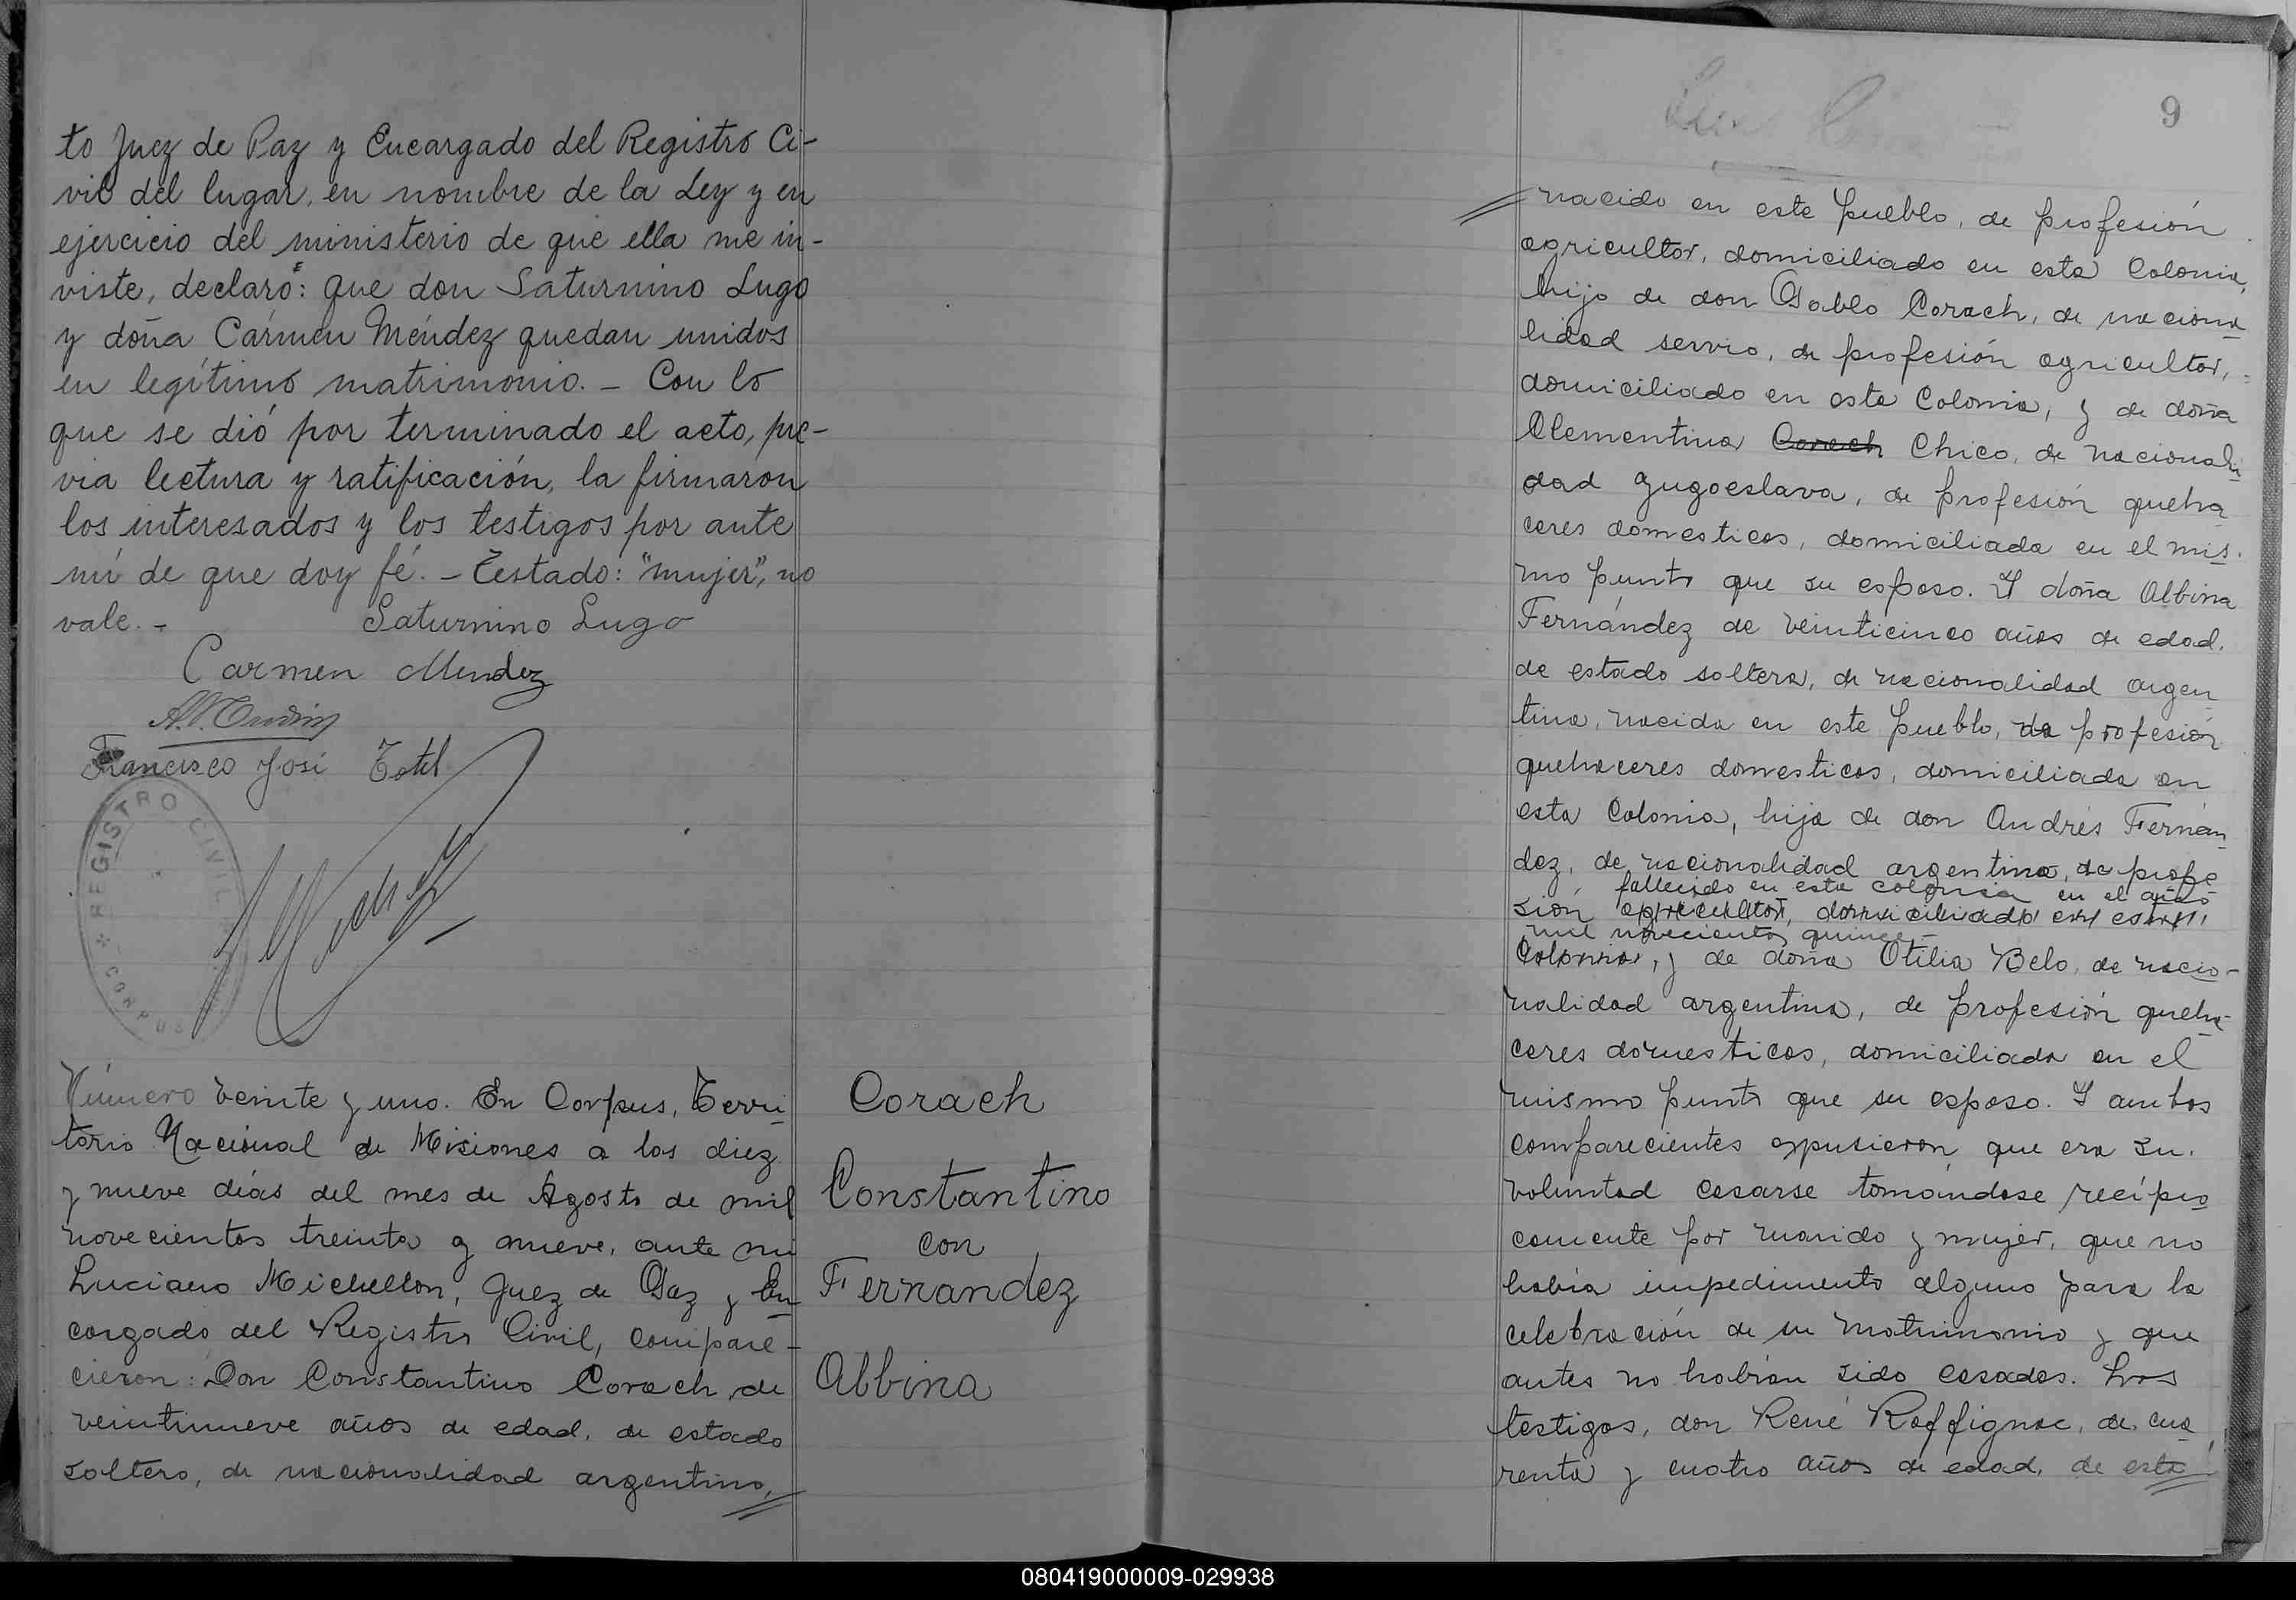 to Juez de Paz y Encargado del Registro Ci-
vil del lugar, en nombre de la Ley y en
ejercicio del ministerio de que ella me in-
viste, declaro: que don Saturnino Lugo
y doña Cármen Méndez quedan unidos
en legítimo matrimonio. - Con lo
que se dió por terminado el acto, pre-
via lectura y ratificación, la firmaron
los interesados y los testigos por ante
mí de que doy fé. - Testado: "mujer", no
vale. - Saturnino Lugo
Carmen Mendez
Francisco José
REGISTRO CIVIL
CORPUS
Número veinte y uno. En Corpus, Terri
torio Nacional de Misiones a los diez
y nueve días del mes de Agosto de mil
novecientos treinta y nueve, ante mi
Luciano Michellon, Juez de Paz y En
cargado del Registro Civil, compare-
cieron: Don Constantino Corach, de
veintinueve años de edad, de estado
soltero, de nacionalidad argentino,
Corach
Constantino
con
Fernandez
Albina
9
nacido en este pueblo, de profesión
agricultor, domiciliado en esta Colonia,
hijo de don Pablo Corach, de naciona
lidad servio, de profesión agricultor,
domiciliado en esta Colonia, y de doña
Clementina Corach Chico, de nacionali
dad yugoeslava, de profesión queha
ceres domesticos, domiciliada en el mis
mo punto que su esposo. Y doña Albina
Fernández de veinticinco años de edad,
de estado soltera, de nacionalidad argen
tina, nacida en este pueblo, de profesión
quehaceres domesticos, domiciliada en
esta Colonia, hija de don Andrés Fernán
dez, de nacionalidad argentina, de profe
fallecido en esta colonia en el año
sión agricultor, domiciliado en esta
mil novecientos quince
Colonia, y de doña Otilia Belo, de nacio-
nalidad argentina, de profesión queha
ceres domesticos, domiciliada en el
mismo punto que su esposo. Y ambos
comparecientes expusieron, que era su
voluntad casarse tomandose recípro
camente por marido y mujer, que no
había impedimento alguno para la
celebración de su matrimonio y que
antes no habían sido casados. Los
testigos, don René Raffignac, de cua
renta y cuatro años de edad, de esta
080419000009-029938